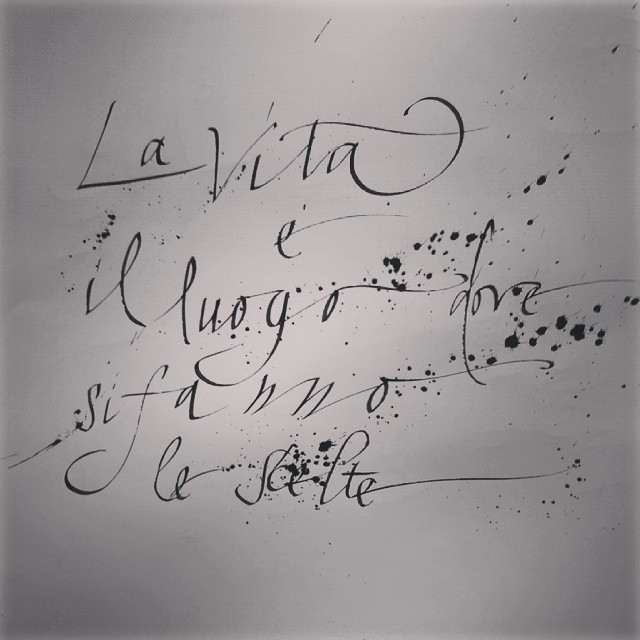 La Vita
è
il luogo dove
si fanno
le scelte